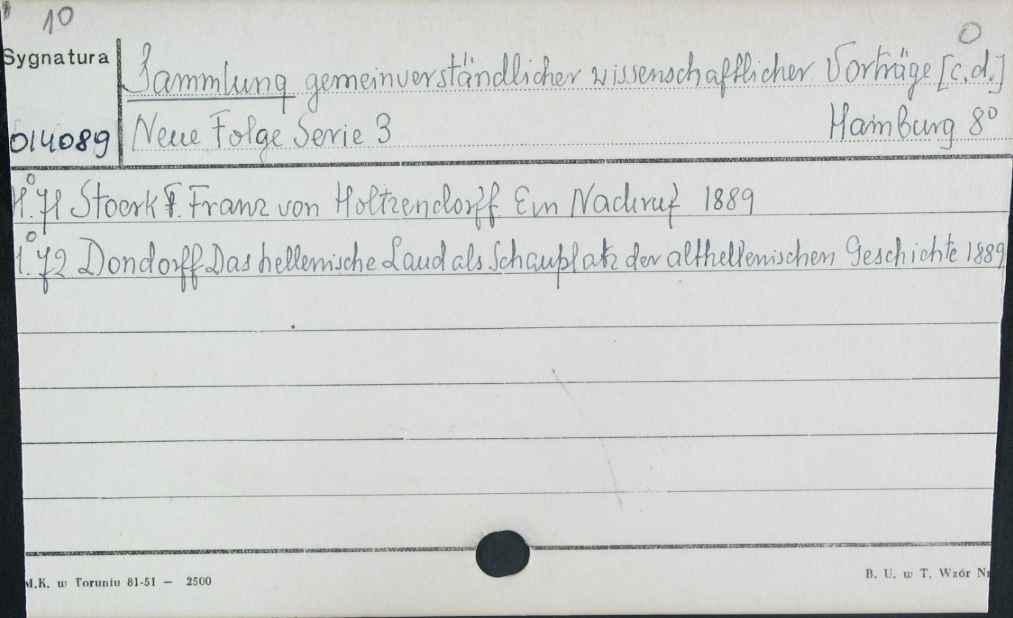 10
0
Sygnatura
Sammlung gemeinverständlicher wissenschaftlicher Vorträge [c.d.]
014089 Neue Folge Serie 3 Hamburg 8°
H. 71 Stoerk F. Franz von Holtzendorff Ein Nachruf 1889
H. 72 Dondorff Das hellenische Land als Schauplatz der althellenischen Geschichte 1889
M.K. w Toruniu 81-51 — 2500
B. U. w T. Wzór Nr